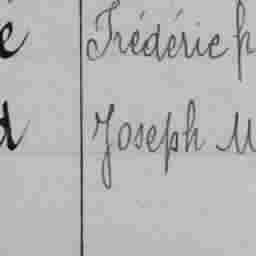 é Frédéric p
d Joseph M